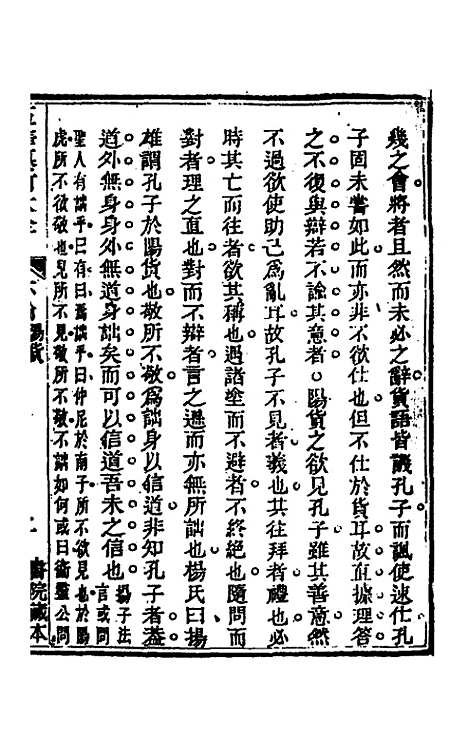 幾之會將者且然而未必之辭貨語皆譏孔子而諷使速仕孔
子固未嘗如此而亦非不欲仕也但不仕於貨耳故直據理答
之不復與辯若不諭其意者○陽貨之欲見孔子雖其善意然
不過欲使助己爲亂耳故孔子不見者義也其往拜者禮也必
時其亡而往者欲其稱也遇諸塗而不避者不終絶也隨問而
對者理之直也對而不辯者言之遜而亦無所詘也楊氏曰揚
雄謂孔子於陽貨也敬所不敬爲詘身以信道非知孔子者蓋
道外無身身外無道身詘矣而可以信道吾未之信也 揚子法
言或問
聖人有詘乎曰有曰焉詘乎曰仲尼於南子所不欲見也於陽
虎所不欲敬也見所不見敬所不敬不詘如何或曰衛靈公問
陽貨
書院藏本